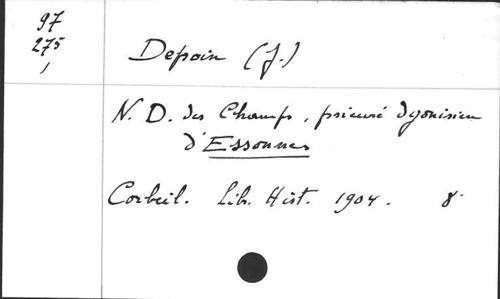 97
275
1
Depoin (J.)
N. D. des Champs, prieuré dyonisien
d'Essonnes
Corbeil. Lib. Hist. 1904. 8°